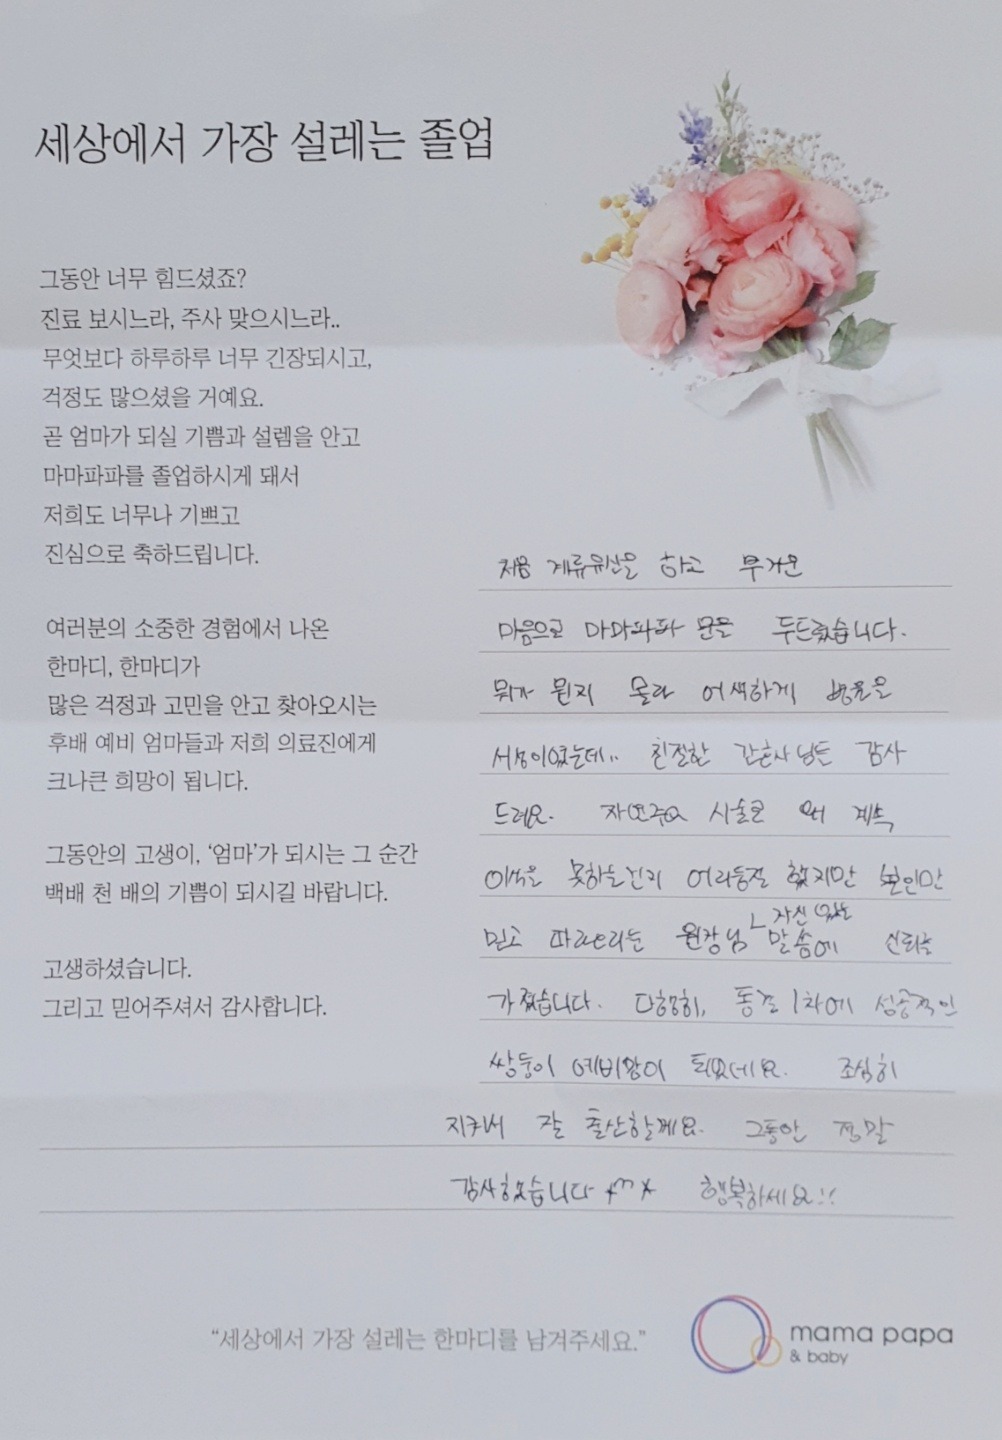 세상에서 가장 설레는 졸업
그동안 너무 힘드셨죠?
진료 보시느라, 주사 맞으시느라..
무엇보다 하루하루 너무 긴장되시고,
걱정도 많으셨을 거예요.
곧 엄마가 되실 기쁨과 설렘을 안고
마마파파를 졸업하시게 돼서
저희도 너무나 기쁘고
진심으로 축하드립니다.
여러분의 소중한 경험에서 나온
한마디, 한마디가
많은 걱정과 고민을 안고 찾아오시는
후배 예비 엄마들과 저희 의료진에게
크나큰 희망이 됩니다.
그동안의 고생이, '엄마'가 되시는 그 순간
백배 천 배의 기쁨이 되시길 바랍니다.
고생하셨습니다.
그리고 믿어주셔서 감사합니다.
처음 계류유산을 하고 무거운
마음으로 마마파파 문을 두드렸습니다.
뭐가 뭔지 몰라 어색하게 병원을
서성이였는데.. 친절한 간호사님든 감사
드려요. 자연주의 시술로 왜 계속
이식을 못하는건지 어리둥절 했지만 본인만
믿고 따라오라는 원장님 자신있는 말씀에 신뢰를
가졌습니다. 다행히, 동결 1차에 성공적인
쌍둥이 예비맘이 되었네요. 조심히
지켜서 잘 출산할께요. 그동안 정말
감사했습니다 *^^* 행복하세요!!
"세상에서 가장 설레는 한마디를 남겨주세요."
mama papa
& baby